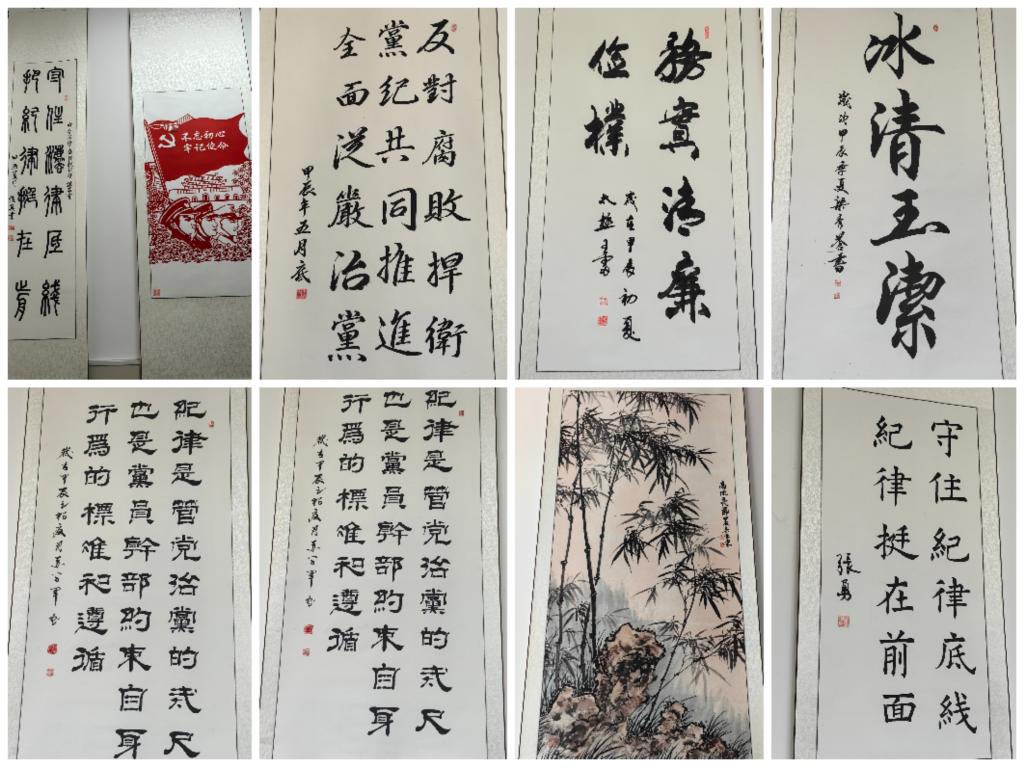 守住灋律底綫
把紀律挺在歬
不忘初心
牢记使命
反對腐敗捍衛
黨紀共同推進
全面從嚴治黨
甲辰年五月底
務實清廉
儉樸
歲在甲辰初夏
冰清玉潔
歲次甲辰季夏
紀律是管党治黨的戒尺
也是黨員幹部約束自身
行爲的標准和遵循
歲在甲辰
紀律是管党治黨的戒尺
也是黨員幹部約束自身
行爲的標准和遵循
歲在甲辰
守住紀律底线
紀律挺在前面
張勇